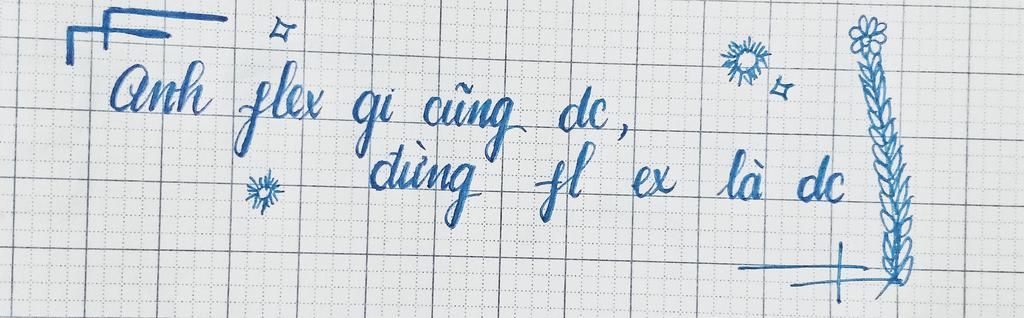 anh flex gi cũng dc,
đừng fl ex là dc